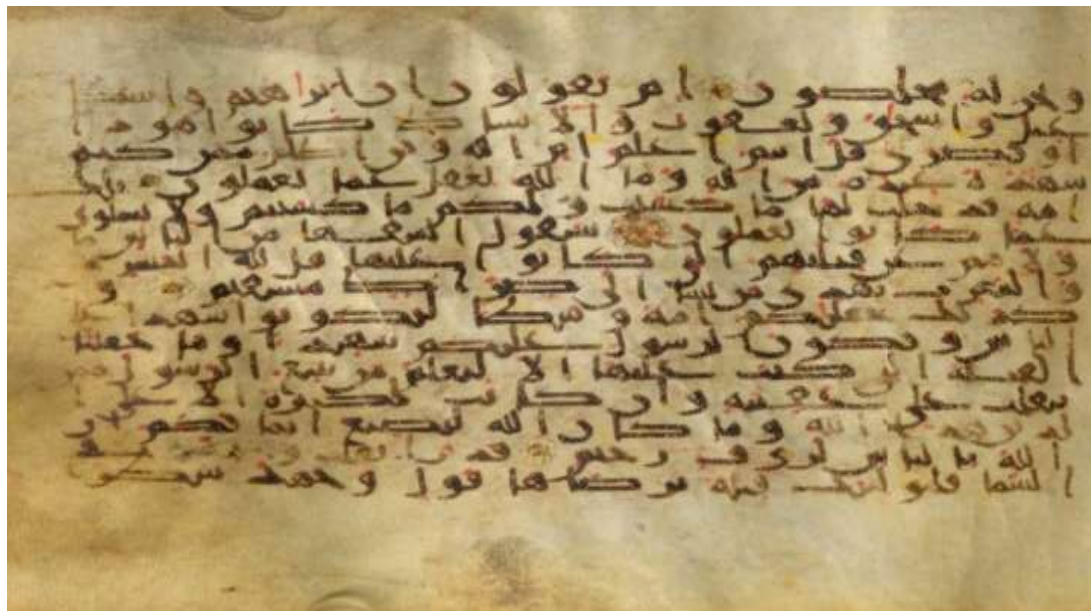 ونحن له مخلصون ام تقولون ان ابراهيم واسمع
يل واسحق ويعقوب والاسباط كانوا هودا
او نصرى قل انتم اعلم ام الله ومن اظلم ممن كتم
شهدة عنده من الله وما الله بغفل عما تعملون تلك
امة قد خلت لها ما كسبت ولكم ما كسبتم ولا تسلون
عما كانوا يعملون سيقول السفها من الناس
ما وليهم عن قبلتهم التي كانوا عليها قل لله المشرق
والمغرب يهدي من يشا الى صرط مستقيم و
كذلك جعلنكم امة وسطا لتكونوا شهدا
الناس ويكون الرسول عليكم شهيدا وما جعلنا
القبلة التي كنت عليها الا لنعلم من يتبع الرسول ممن
ينقلب على عقبيه وان كانت لكبيرة الا على ا
لذين هدى الله وما كان الله ليضيع ايمنكم ان
الله بالناس لروف رحيم قد نرى تقلب وجهك في
السما فلنولينك قبلة ترضاها فول وجهك شطر